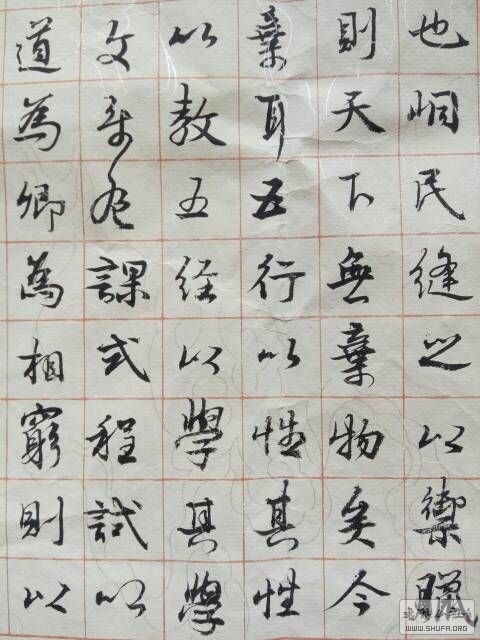 也峒民縫之以禦臘
則天下無棄物矣今
棄耳五行以性其性
以教五經以學其學
文課式程試以
道為卿為相窮則以
WWW.SHUFA.ORG